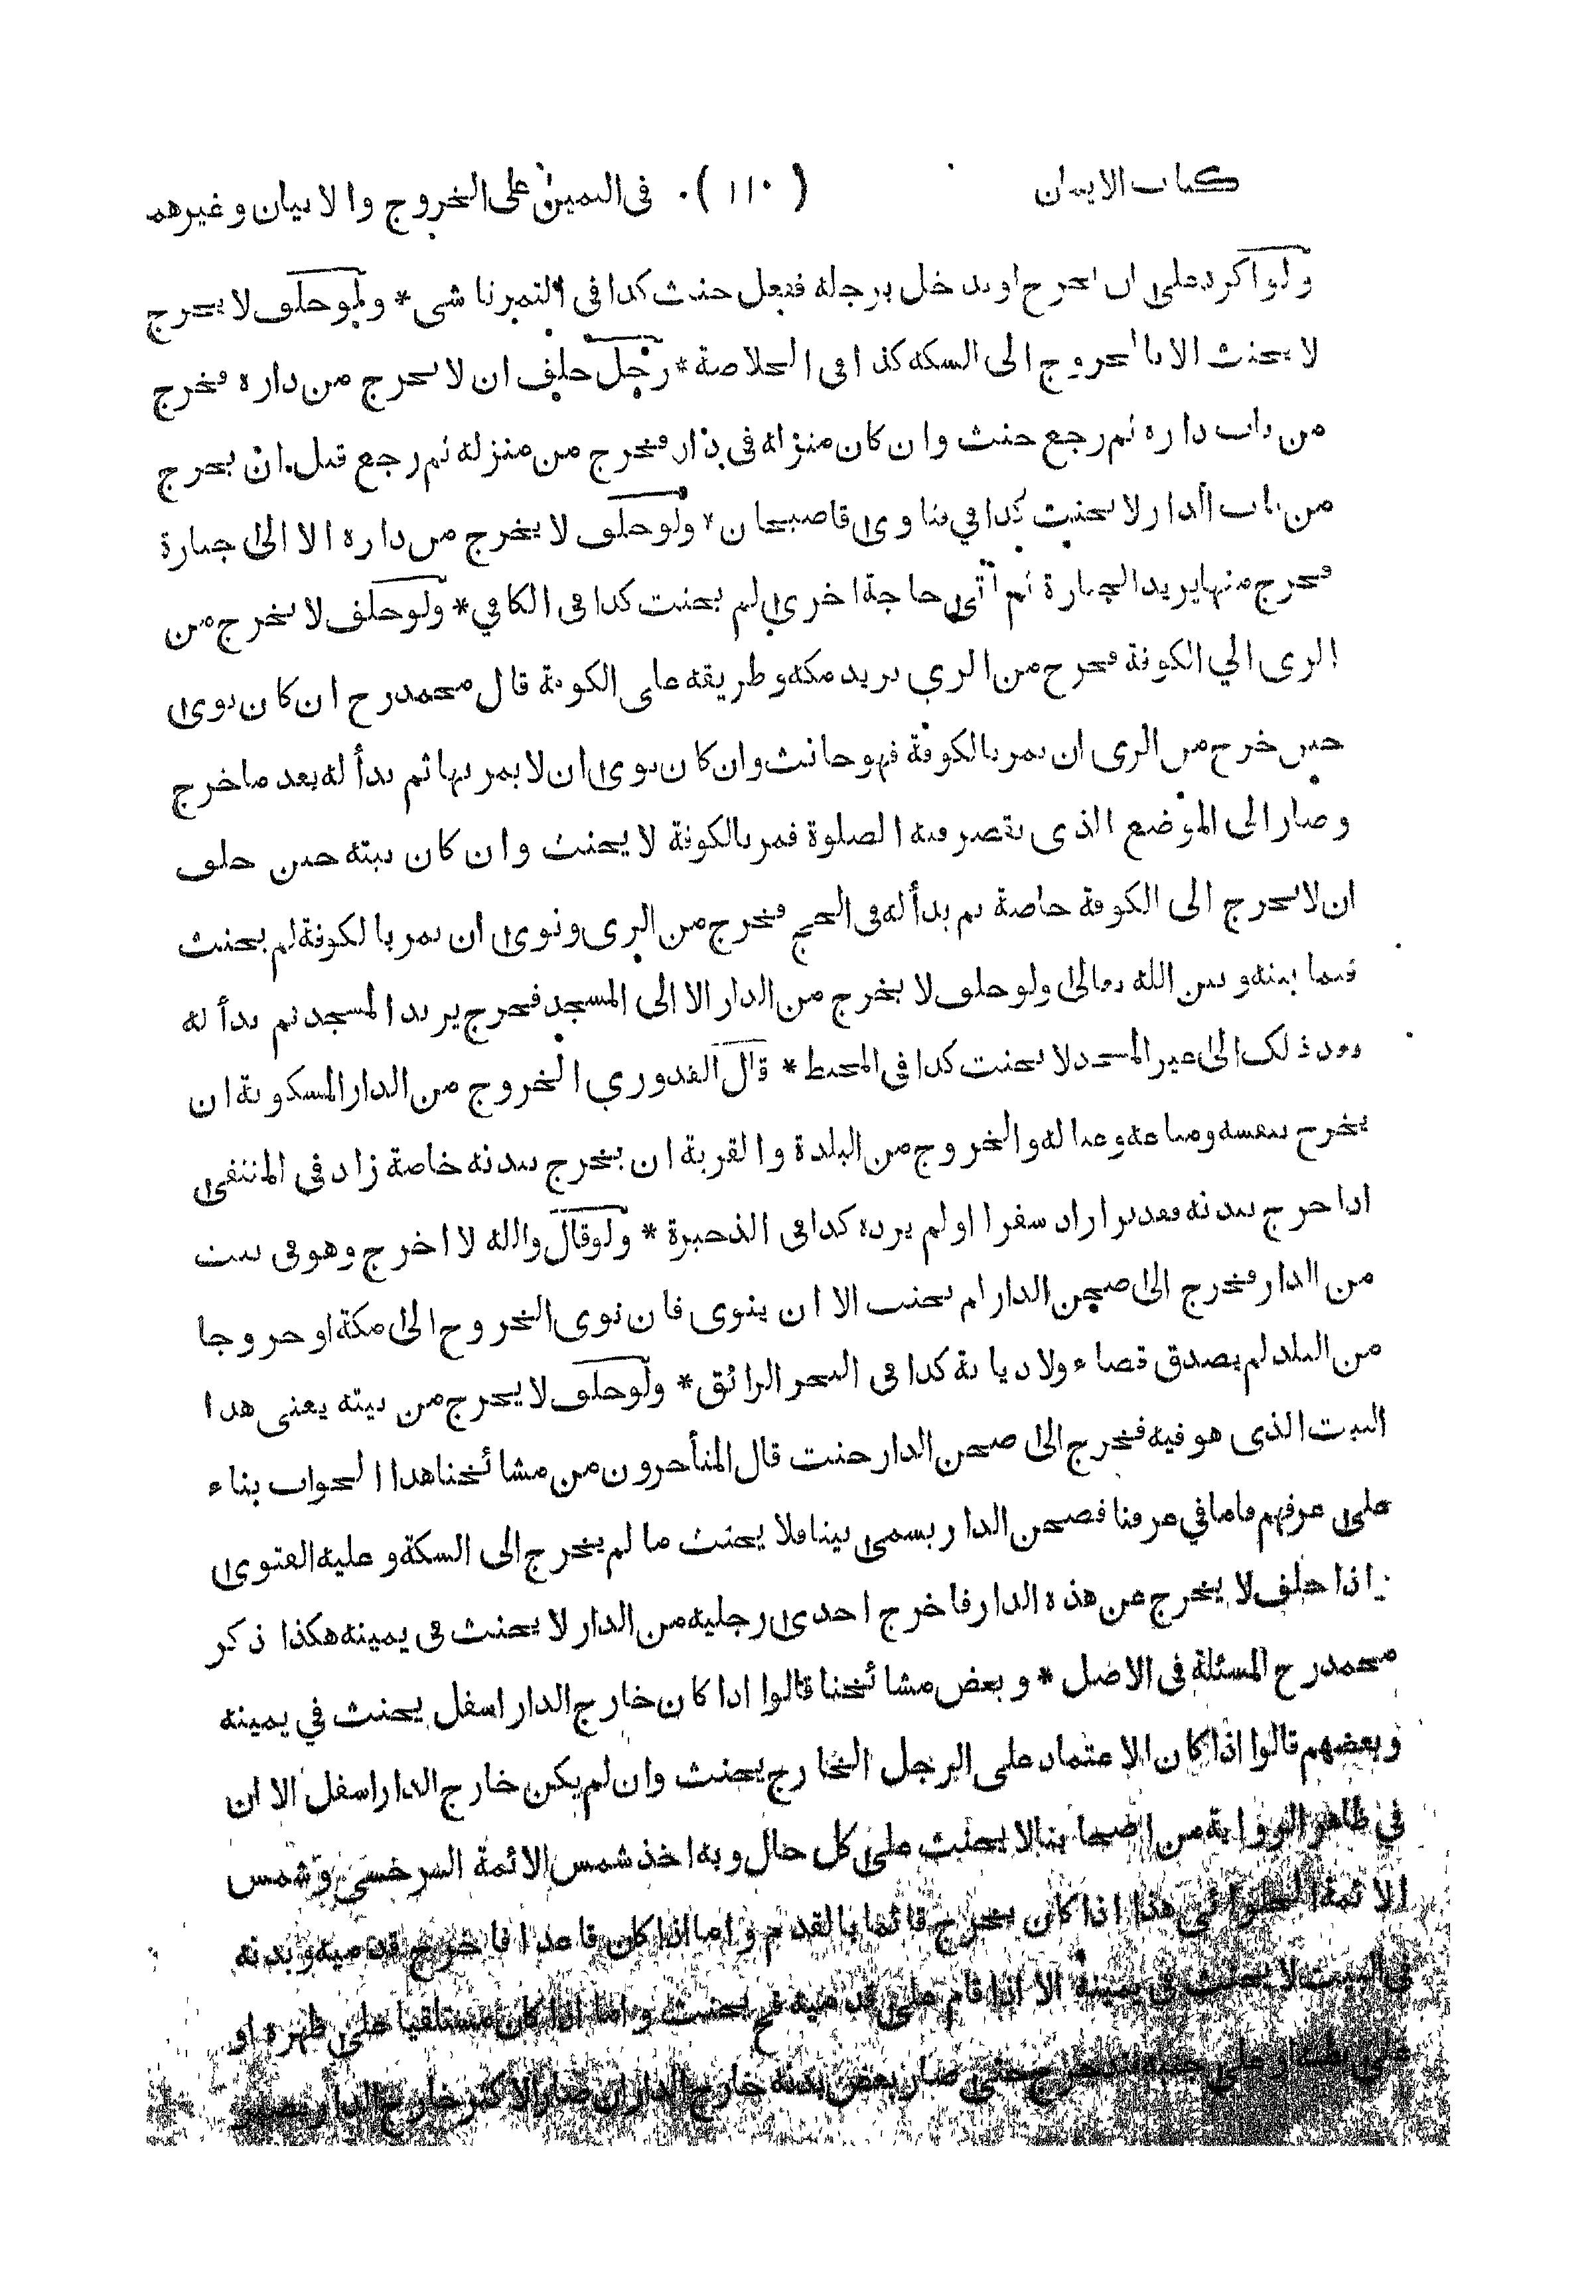 كتاب الايمان ( ١١٠ ) في اليمين على الخروج والاتيان وغيرهما
ولو اكره على ان يخرج او يدخل برجله ففعل حنث كذا في التمرتاشي * ولو حلف لا يخرج
لا يحنث الا بالخروج الى السكة كذا في الخلاصة * رجل حلف ان لا يخرج من داره فخرج
من باب داره ثم رجع حنث وان كان منزله في دار فخرج من منزله ثم رجع قبل ان يخرج
من باب الدار لا يحنث كذا في فتاوى قاضيخان * ولو حلف لا يخرج من داره الا الى جنازة
فخرج منها يريد الجنازة ثم أتى حاجة اخرى لم يحنث كذا في الكافي * ولو حلف لا يخرج من
الري الى الكوفة فخرج من الري يريد مكة وطريقه على الكوفة قال محمد رح ان كان نوى
حين خرج من الري ان يمر بالكوفة فهو حانث وان كان نوى ان لا يمر بها ثم بدأ له بعد ما خرج
وصار الى الموضع الذي يقصر فيه الصلوة فمر بالكوفة لا يحنث وان كان نيته حين حلف
ان لا يخرج الى الكوفة خاصة ثم بدأ له في الحج فخرج من الري ونوى ان يمر بالكوفة لم يحنث
فيما بينه وبين الله تعالى ولو حلف لا يخرج من الدار الا الى المسجد فخرج يريد المسجد ثم بدأ له
بعد ذلك الى غير المسجد لا يحنث كذا في المحيط * قال القدوري الخروج من الدار المسكونة ان
يخرج بنفسه ومتاعه وعياله والخروج من البلدة والقرية ان يخرج ببدنه خاصة زاد في المنتقى
اذا خرج ببدنه فقد بر اراد سفرا او لم يرده كذا في الذخيرة * ولو قال والله لا اخرج وهو في بيت
من الدار فخرج الى صحن الدار لم يحنث الا ان ينوي فان نوى الخروج الى مكة او خروجا
من البلد لم يصدق قضاء ولا ديانة كذا في البحر الرائق * ولو حلف لا يخرج من بيته يعني هذا
البيت الذي هو فيه فخرج الى صحن الدار حنث قال المتأخرون من مشائخنا هذا الجواب بناء
على عرفهم فاما في عرفنا فصحن الدار يسمى بيتا فلا يحنث ما لم يخرج الى السكة وعليه الفتوى
اذا حلف لا يخرج عن هذه الدار فاخرج احدى رجليه من الدار لا يحنث في يمينه هكذا ذكر
محمد رح المسئلة في الاصل * وبعض مشائخنا قالوا اذا كان خارج الدار اسفل يحنث في يمينه
وبعضهم قالوا اذا كان الاعتماد على الرجل الخارج يحنث وان لم يكن خارج الدار اسفل الا ان
في ظاهر الرواية من اصحابنا لا يحنث على كل حال وبه اخذ شمس الائمة السرخسي وشمس
الائمة الحلوائي هذا اذا كان يخرج قائما بالقدم واما اذا كان قاعدا فاخرج قدميه وبدنه
في البيت لا يحنث في يمينه الا اذا قام على قدميه فح يحنث واما اذا كان مستلقيا على ظهره او
على بطنه او على جنبه فتدحرج حتى صار بعض بدنه خارج الدار ان صار الاكثر خارج الدار يصير